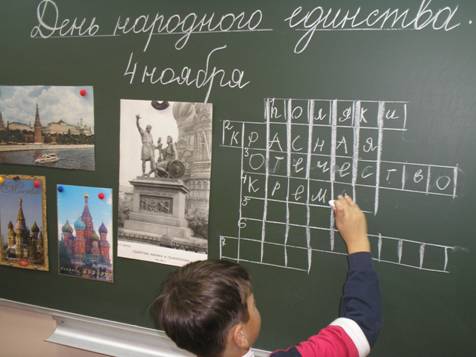 День народного единства.
4 ноября
поляки
2 Красная
3 Отечество
4 Крем
5
6
7